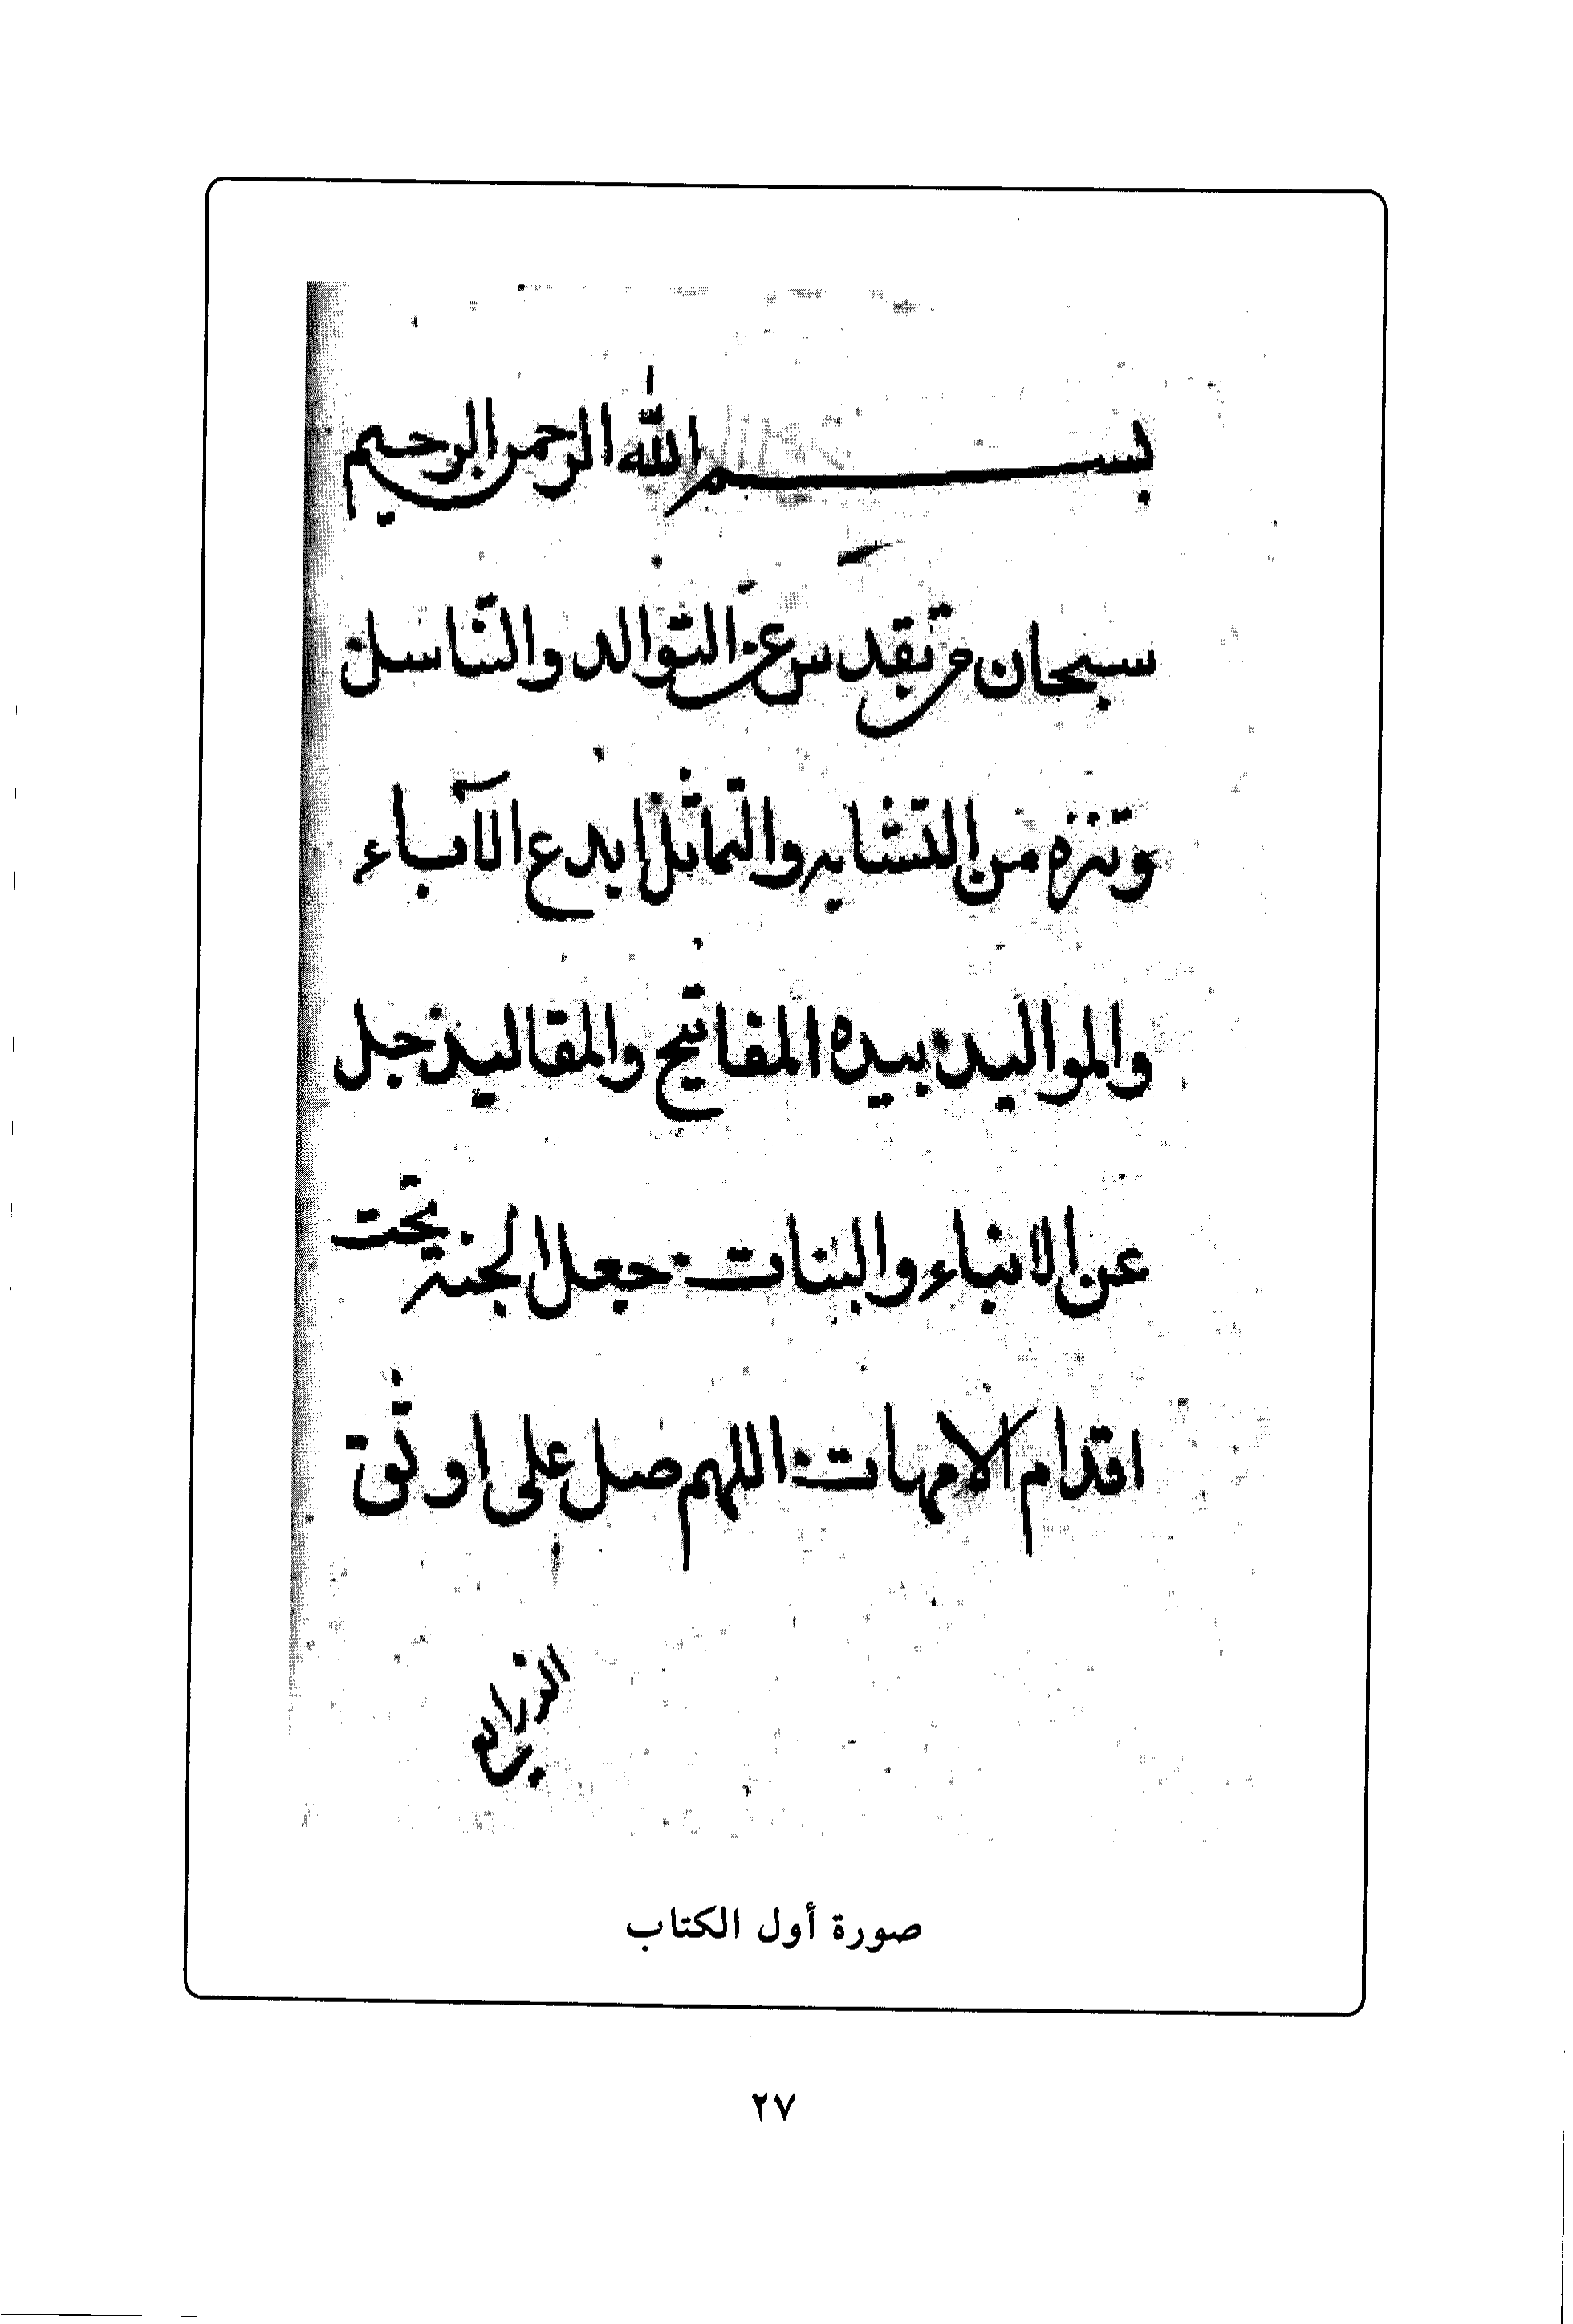 بسم الله الرحمن الرحيم
سبحان من تقدس عن التوالد والتناسل
وتنزه من التشابه والتماثل ابدع الآباء
والمواليد بيده المفاتيح والمقاليد جل
عن الابناء والبنات جعل الجنة تحت
اقدام الامهات اللهم صل على اوثق
الذرايع
صورة أول الكتاب
٢٧